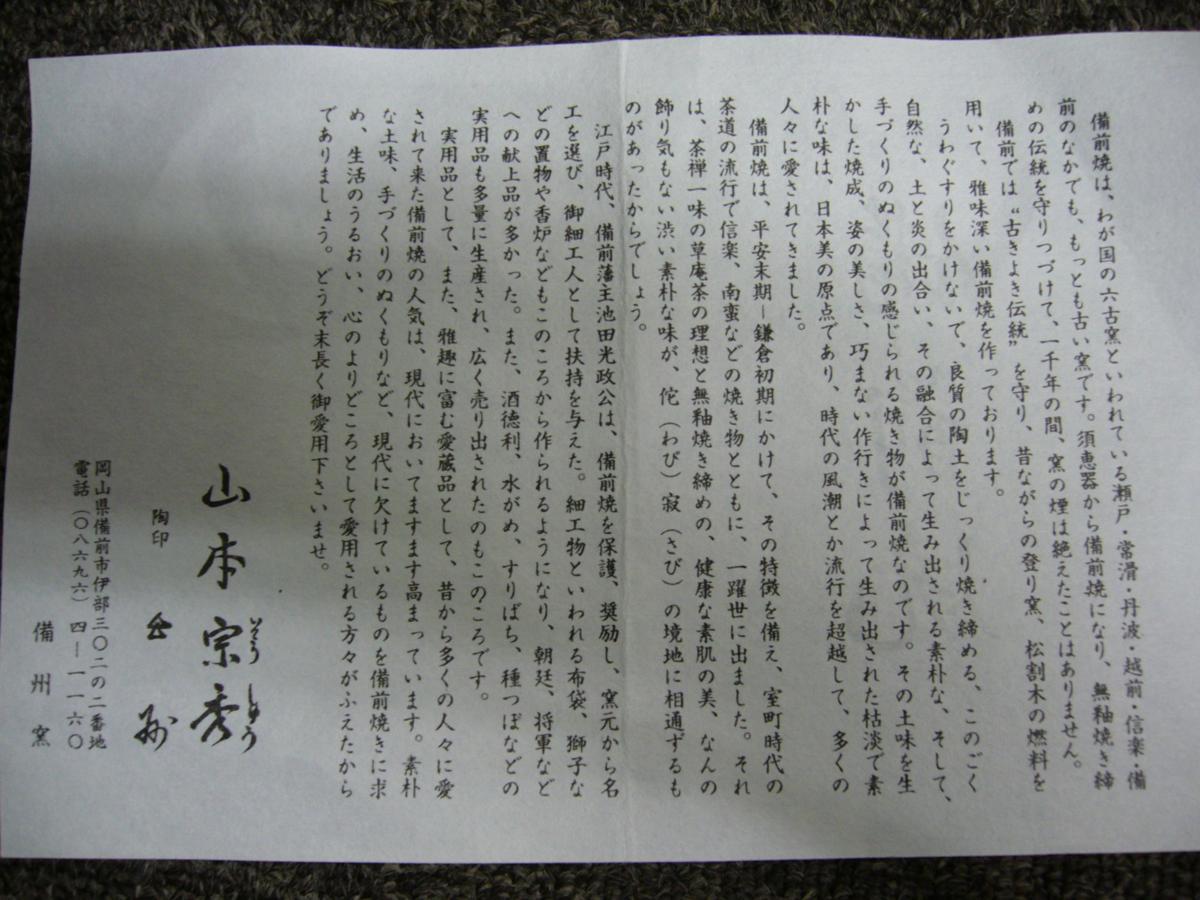 備前焼は、わが国の六古窯といわれている瀬戸・常滑・丹波・越前・信楽・備
前のなかでも、もっとも古い窯です。須恵器から備前焼になり、無釉焼き締
めの伝統を守りつづけて、一千年の間、窯の煙は絶えたことはありません。
備前では〝古きよき伝統〟を守り、昔ながらの登り窯、松割木の燃料を
用いて、雅味深い備前焼を作っております。
うわぐすりをかけないで、良質の陶土をじっくり焼き締める、このごく
自然な、土と炎の出合い、その融合によって生み出される素朴な、そして、
手づくりのぬくもりの感じられる焼き物が備前焼なのです。その土味を生
かした焼成、姿の美しさ、巧まない作行きによって生み出された枯淡で素
朴な味は、日本美の原点であり、時代の風潮とか流行を超越して、多くの
人々に愛されてきました。
備前焼は、平安末期―鎌倉初期にかけて、その特徴を備え、室町時代の
茶道の流行で信楽、南蛮などの焼き物とともに、一躍世に出ました。それ
は、茶禅一味の草庵茶の理想と無釉焼き締めの、健康な素肌の美、なんの
飾り気もない渋い素朴な味が、侘（わび）寂（さび）の境地に相通ずるも
のがあったからでしょう。
江戸時代、備前藩主池田光政公は、備前焼を保護、奨励し、窯元から名
工を選び、御細工人として扶持を与えた。細工物といわれる布袋、獅子な
どの置物や香炉などもこのころから作られるようになり、朝廷、将軍など
への献上品が多かった。また、酒徳利、水がめ、すりばち、種つぼなどの
実用品も多量に生産され、広く売り出されたのもこのころです。
実用品として、また、雅趣に富む愛蔵品として、昔から多くの人々に愛
されて来た備前焼の人気は、現代においてますます高まっています。素朴
な土味、手づくりのぬくもりなど、現代に欠けているものを備前焼きに求
め、生活のうるおい、心のよりどころとして愛用される方々がふえたから
でありましょう。どうぞ末長く御愛用下さいませ。
山本宗秀
そうしゅう
陶印
岡山県備前市伊部三〇二の二番地
電話（〇八六九六）四―一一六〇
備州窯